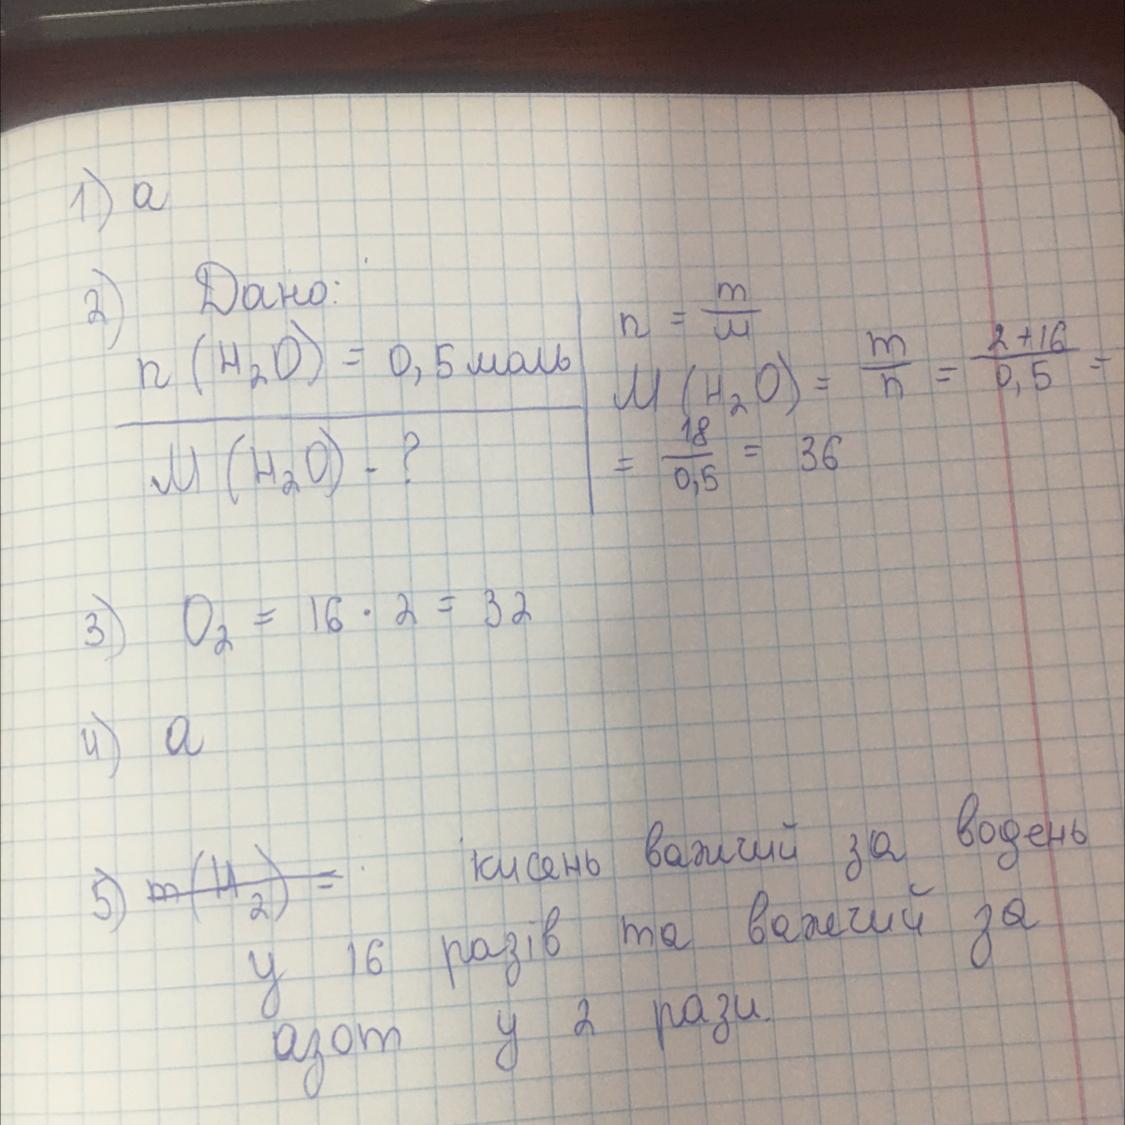 1) а
2) Дано:
n (H₂O) = 0,5 моль
M (H₂O) - ?
n = m/M
M (H₂O) = m/n = 2+16/0,5 =
= 18/0,5 = 36
3) O₂ = 16 · 2 = 32
4) а
5) m(H₂) = кисень важчий за водень
у 16 разів та важчий за
азот у 2 рази.